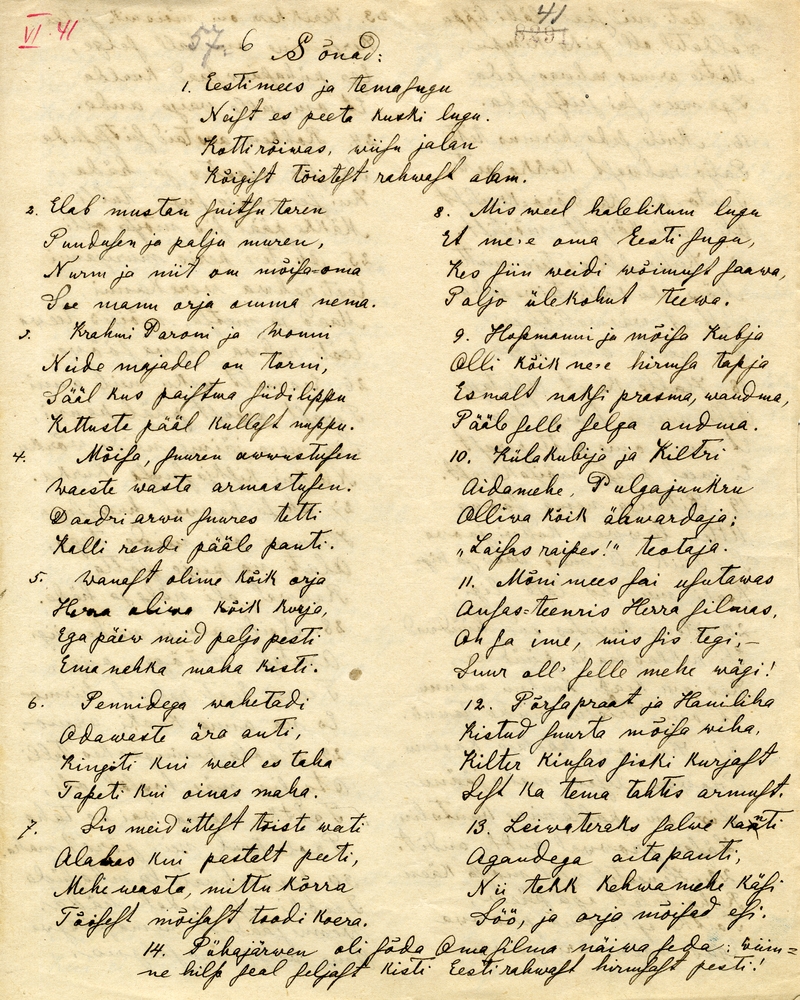 VI 41
57. 6
41
Sõnad:
1. Eestimees ja temasugu
Neist es peeta kuski lugu.
Kottirõiwas, wiisu jalan
Kõigist tõistest rahwast alam.
2. Elab mustan suitsu taren
Pundusen ja palju muren,
Nurm ja niit om mõisa-oma
See mann orja omma nema.
3. Krahwi Paroni ja wonni
Neide majadel on torni,
Sääl kus paistwa siidilippu
Kattuste pääl kullast nuppu.
4. Mõisa, suuren auwustusen
Waeste wasta armastusen.
Daadri arwu suures tetti
Kalli rendi pääle panti.
5. Wanast olime kõik orja
Herra oliwa kõik kurja,
Ega päiw meid paljo pesti
Ema nahka maha kisti.
6. Pennidega wahetadi
Odawaste ära anti,
Kingiti kui weel es taha
Tapeti kui oinas maha.
7. Sis meid üttest tõiste wati
Alabas kui pastalt peeti,
Mehe wasta, mittu kõrra
Tõisest mõisast toodi koera.
8. Mis weel halelikum lugu
Et meie oma Eesti sugu,
Kes siin weidi wõimust saawa,
Paljo ülekohut teewa.
9. Hopmanni ja mõisa Kubja
Olli kõik neie hirmsa tapja
Esmalt naksi prasma, wandma,
Pääle selle selga andma.
10. Külakubija ja Kiltri
Aidamehe, Pulgajunkru
Olliwa kõik ähwardaja;
„Laisas raipes!" teotaja.
11. Mõni mees sai usutawas
Ausas-teenris Herra silmas,
Oh sa ime, mis sis tegi, —
Suur oll' selle mehe wägi!
12. Põrsapraat ja Haniliha
Kistud suurta mõisa wiha,
Kilter kiusas siski kurjast
Sest ka tema tahtis armust.
13. Leiwateraks salwe kaanti
Agandega aita panti,
Nii tekk kehwamehe käsi
Söö, ja orja mõisad esi.
14. Pühajärwen oli sõda Oma silma näiwa seda: wiim=
ne hilp seal seljast kisti Eesti rahwast hirmsast pesti!